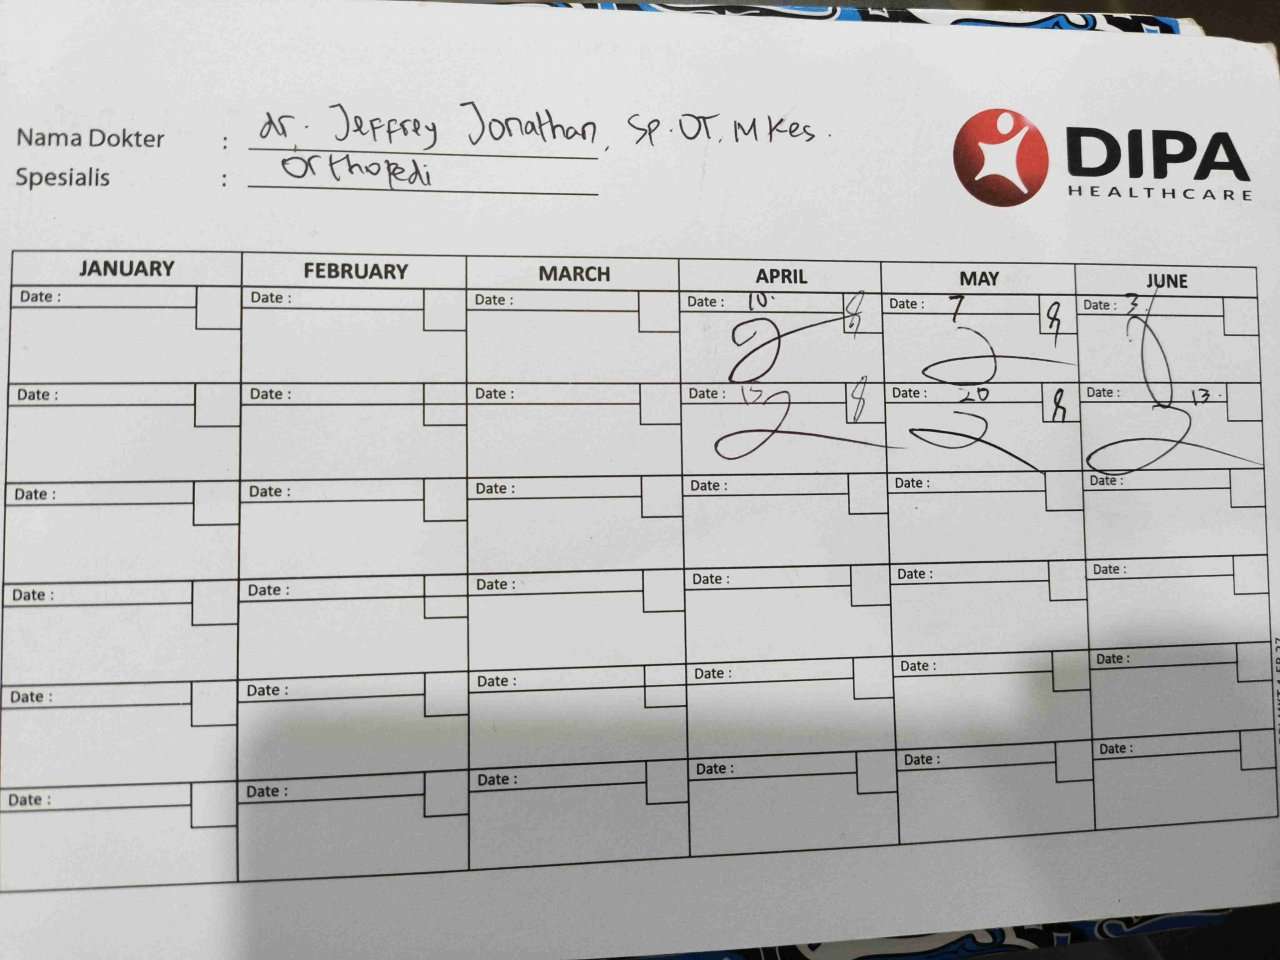 Nama Dokter : dr. Jeffrey Jonathan, Sp.OT, M Kes.
Spesialis : Orthopedi
DIPA
HEALTHCARE
JANUARY FEBRUARY MARCH APRIL MAY JUNE
Date : Date : Date : Date : 10. Date : 7 Date : 3.
Date : Date : Date : Date : Date : 20 Date : 13.
Date : Date : Date : Date : Date : Date :
Date : Date : Date : Date : Date : Date :
Date : Date : Date : Date : Date : Date :
Date : Date : Date : Date : Date : Date :